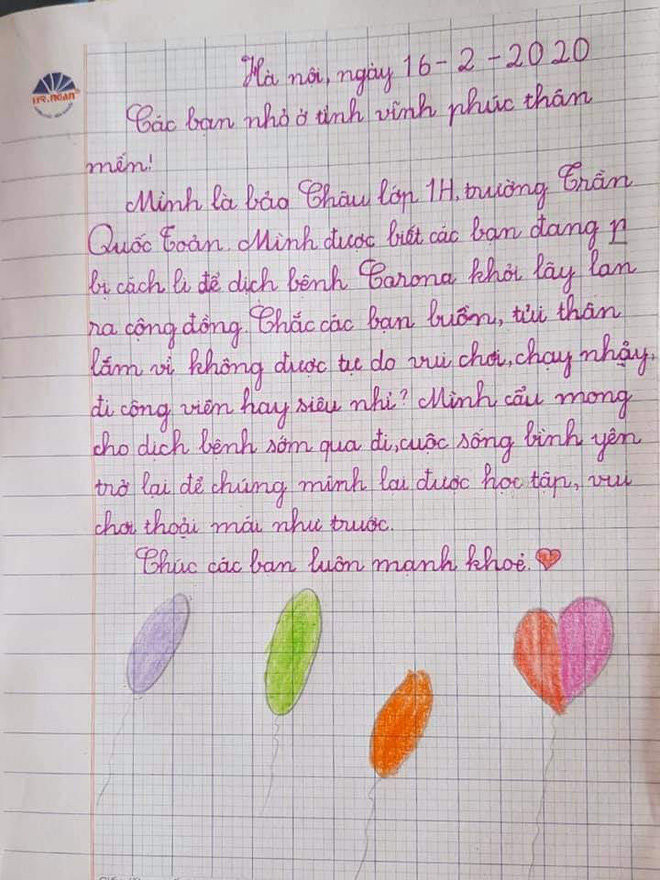 Hà nôi, ngày 16-2-2020
HR.NGAN
Các bạn nhỏ ở tỉnh vĩnh phúc thân
mến!
Mình là bảo Châu lớp 1H, trường Trần
Quốc Toản. Mình được biết các bạn đang n
bị cách li để dịch bệnh Carona khỏi lây lan
ra cộng đồng. Chắc các bạn buồn, tủi thân
lắm vì không được tự do vui chơi, chạy nhảy,
đi công viên hay siêu nhi? Mình cầu mong
cho dịch bệnh sớm qua đi, cuộc sống bình yên
trở lại để chúng mình lại được học tập, vui
chơi thoải mái như trước.
Chúc các bạn luôn mạnh khoẻ.